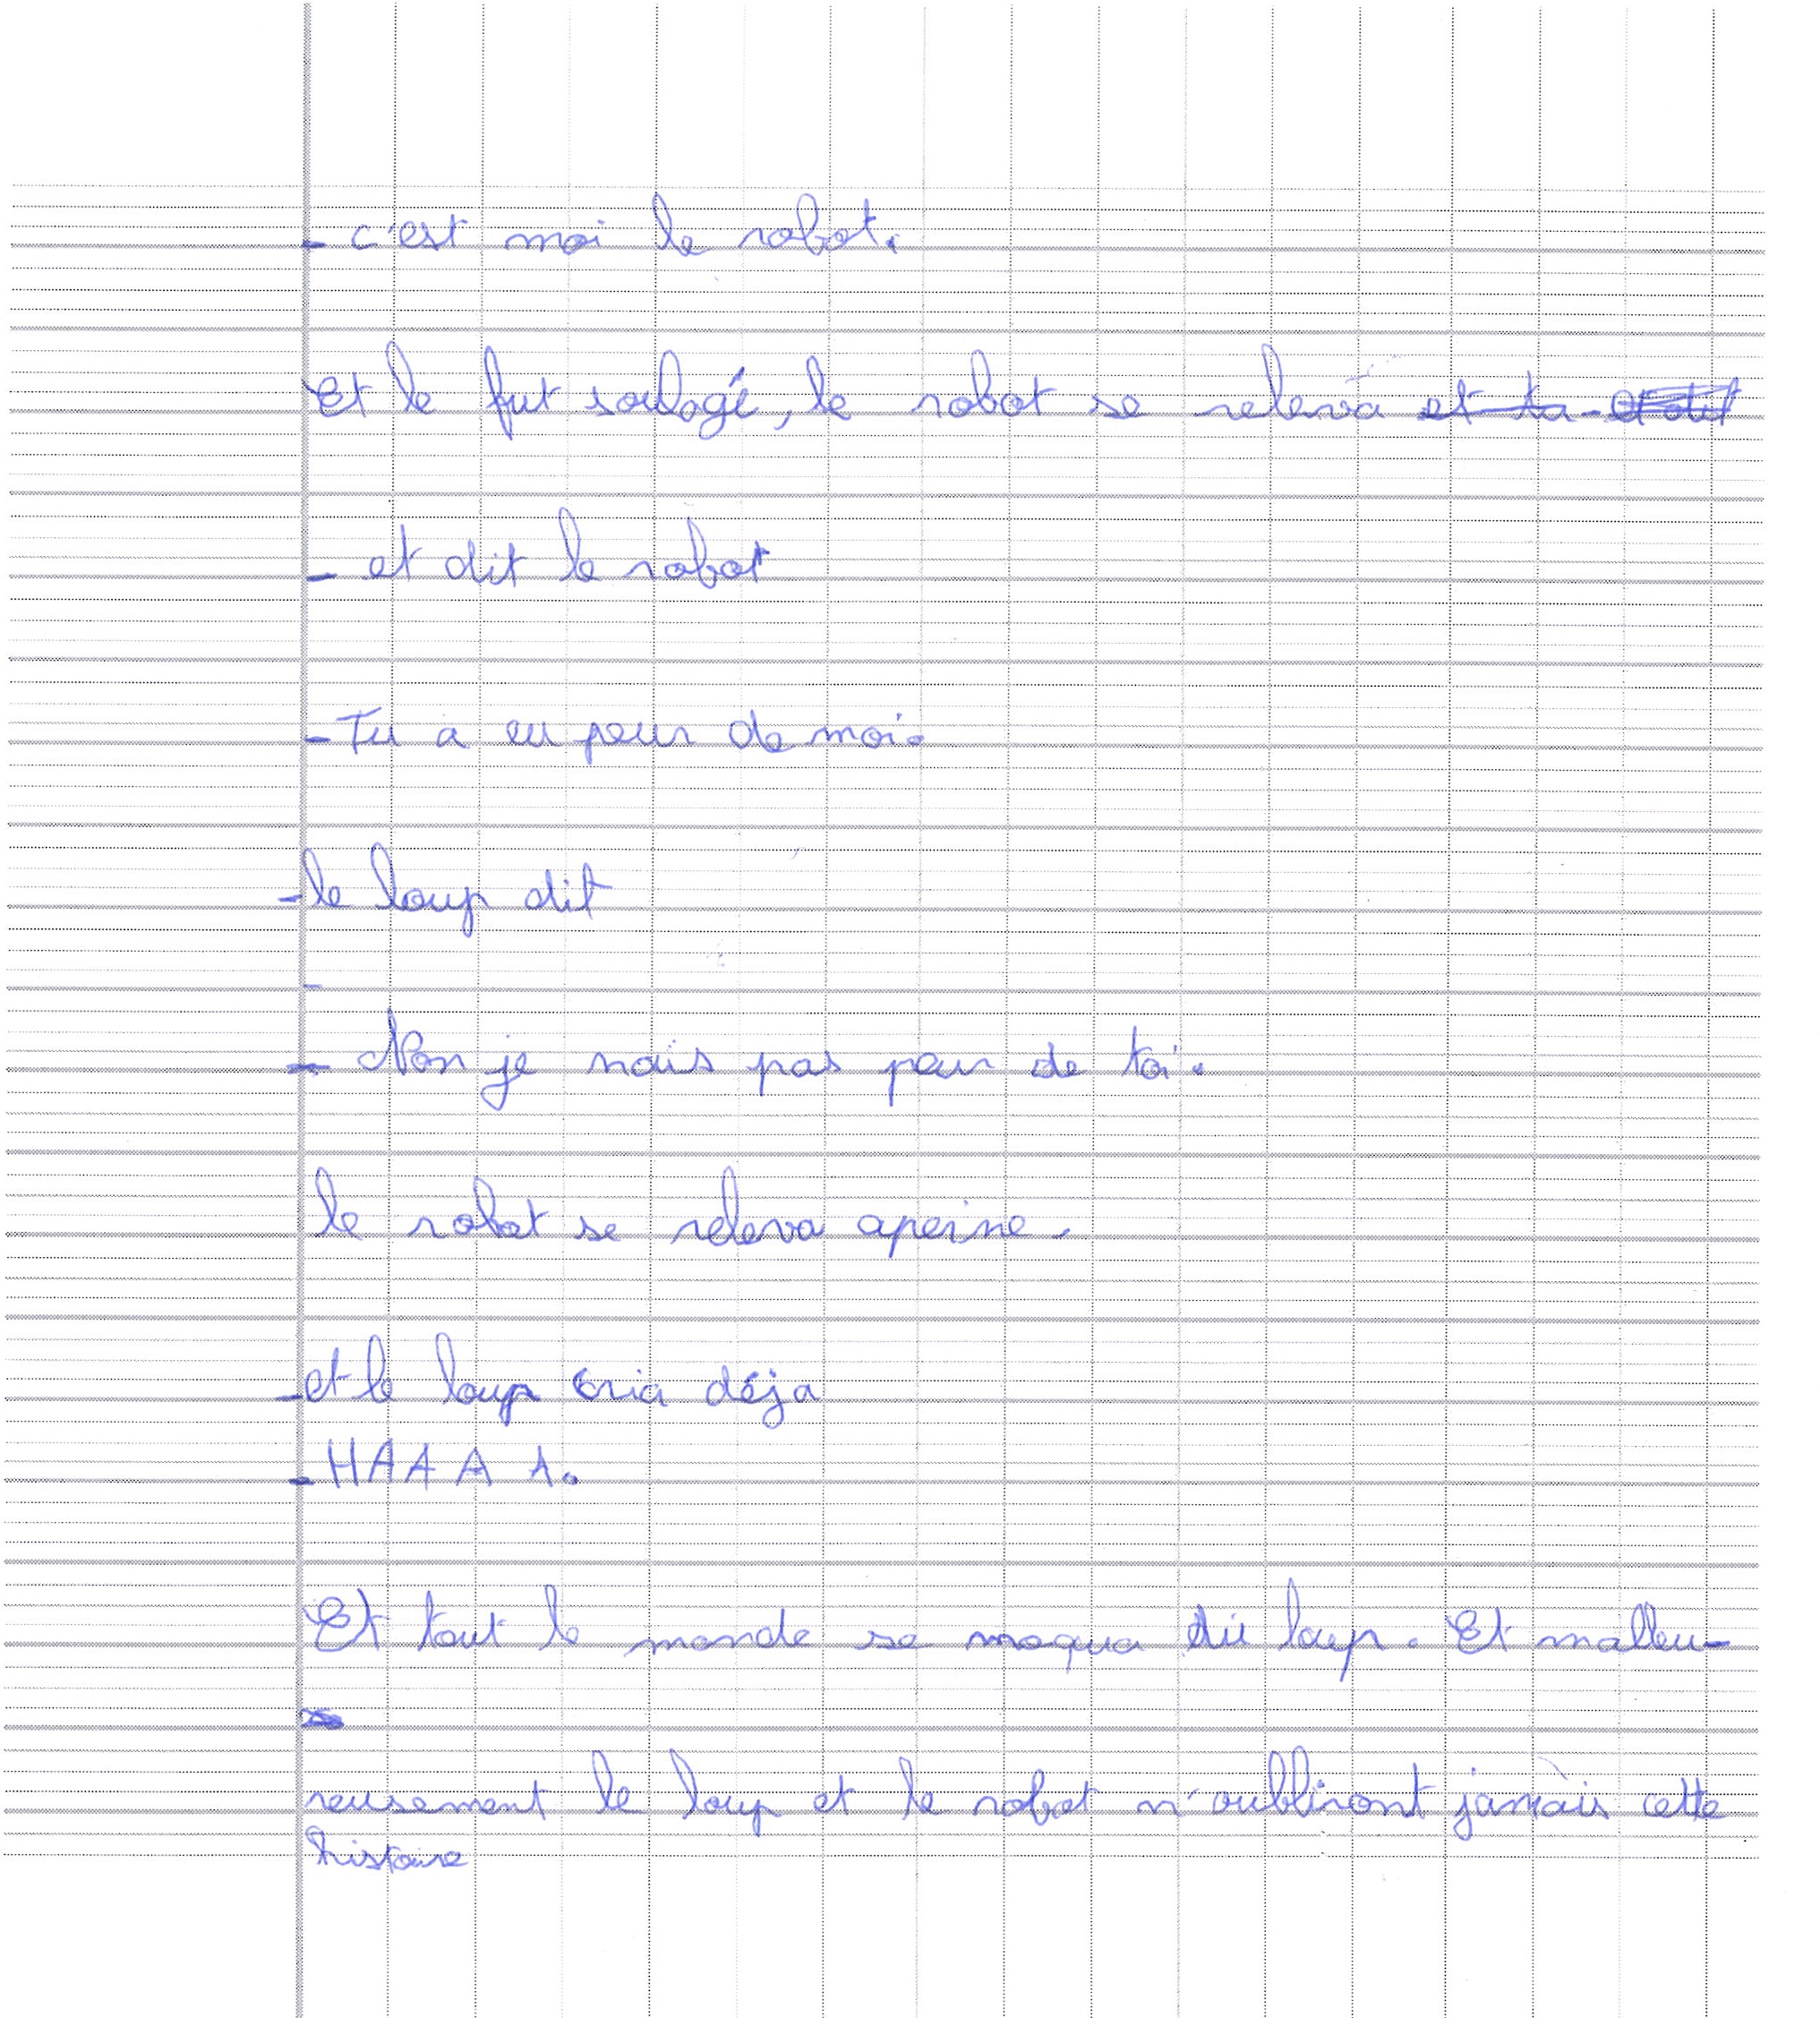 - c'est moi le robot.
Et le fut soulagé, le robot se releva et ta
- et dit le robot
- Tu a eu peur de moi.
- le loup dit
-
- Non je nais pas peur de toi.
le robot se releva apeine.
- et le loup cria déja
- HAAAA.
Et tout le monde se moqua du loup. Et malleu-
reusement le loup et le robot n'oubliront jamais cette
histoire